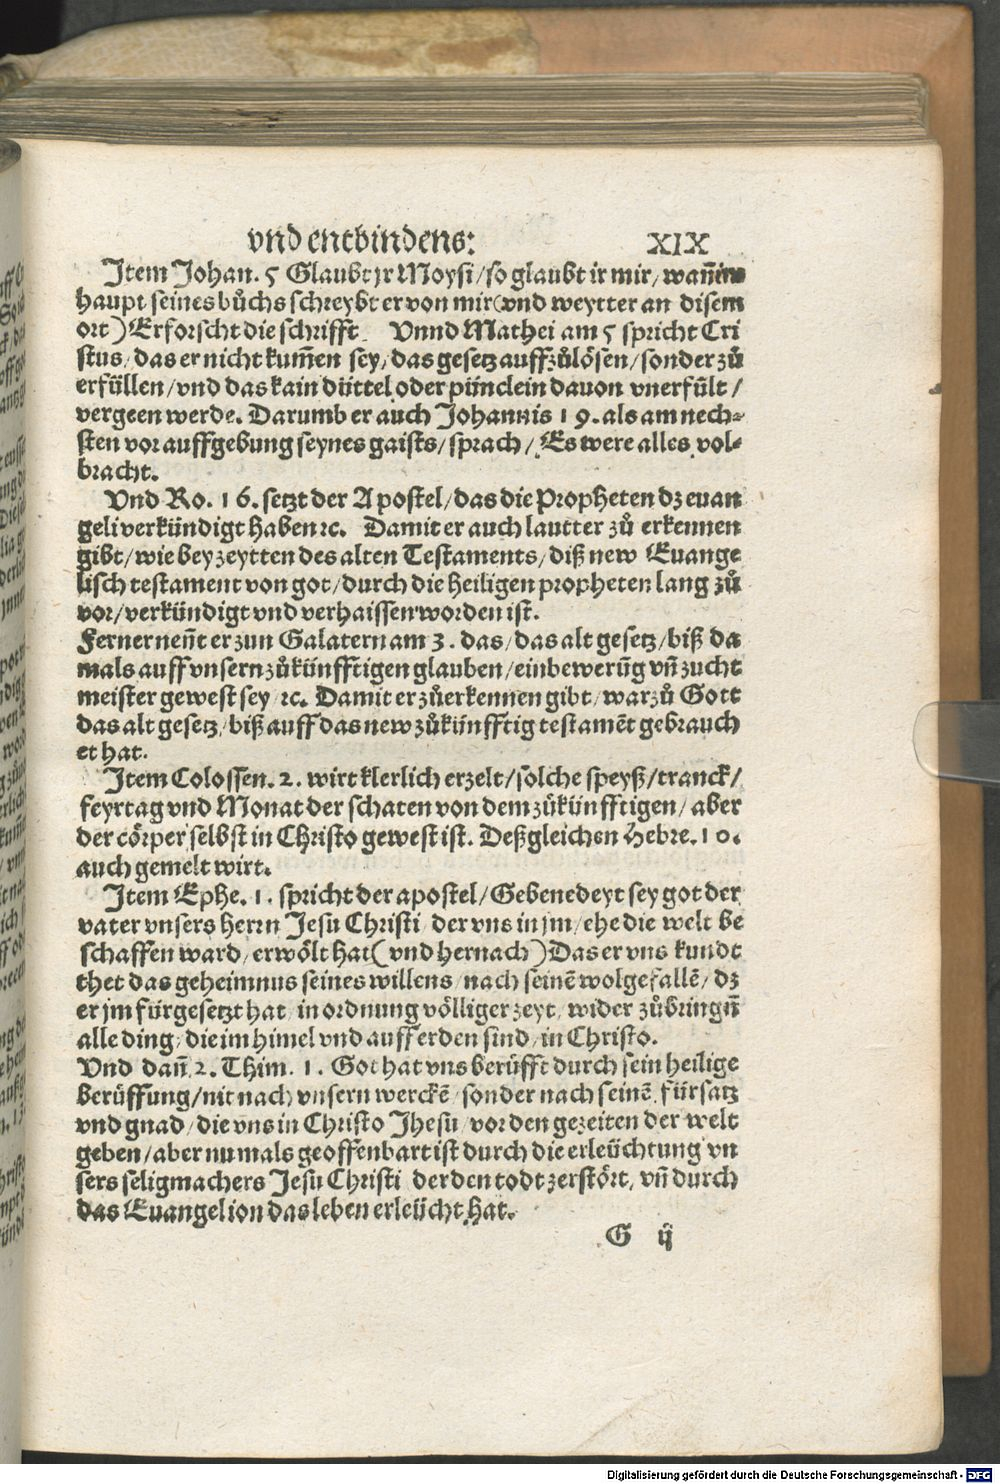 vnd entbindens: XIX
Item Johan. 5 Glaubt jr Moysi/ so glaubt ir mir/ wañ im
haupt seines bůchs schreybt er von mir (vnd weytter an disem
ort) Erforscht die schrifft. Vnnd Mathei am 5 spricht Cri
stus/ das er nicht kum̃en sey/ das gesetz auffzůlösen/ sonder zů
erfüllen/ vnd das kain düttel oder pünclein dauon vnerfült/
vergeen werde. Darumb er auch Johannis 19. als am nech⸗
sten vor auffgebung seynes gaists/ sprach/ Es were alles vol⸗
bracht.
Vnd Ro. 16. setzt der Apostel/ das die Propheten dz euan
geli verkündigt haben ꝛc. Damit er auch lautter zů erkennen
gibt/ wie bey zeytten des alten Testaments/ diß new Euange
lisch testament von got/ durch die heiligen propheten lang zů
vor/ verkündigt vnd verhaissen worden ist.
Ferner neñt er zun Galatern am 3. das/ das alt gesetz/ biß da
mals auff vnsern zůkünfftigen glauben/ ein bewerũg vñ zucht
meister gewest sey/ ꝛc. Damit er zůerkennen gibt/ warzů Gott
das alt gesetz/ biß auff das new zůkünfftig testamẽt gebrauch
et hat.
Item Colossen. 2. wirt klerlich erzelt/ solche speyß/ tranck/
feyrtag vnd Monat der schaten von dem zůkünfftigen/ aber
der cörper selbst in Christo gewest ist. Deßgleichen Hebre. 10.
auch gemelt wirt.
Item Ephe. 1. spricht der apostel/ Gebenedeyt sey got der
vater vnsers herrn Jesu Christi/ der vns in jm/ ehe die welt be
schaffen ward/ erwölt hat (vnd hernach) Das er vns kundt
thet das geheimnus seines willens/ nach seinẽ wolgefallẽ/ dz
er jm fürgesetzt hat/ in ordnung völliger zeyt/ wider zůbringñ
alle ding/ die im himel vnd auff erden sind/ in Christo.
Vnd dañ 2. Thim. 1. Got hat vns berüfft durch sein heilige
berüffung/ nit nach vnsern werckẽ/ sonder nach seinẽ fürsatz
vnd gnad/ die vns in Christo Jhesu/ vor den gezeiten der welt
geben/ aber numals geoffenbart ist durch die erleüchtung vn
sers seligmachers Jesu Christi/ der den todt zerstört/ vñ durch
das Euangelion das leben erleücht hat.
G ij
Digitalisierung gefördert durch die Deutsche Forschungsgemeinschaft - DFG